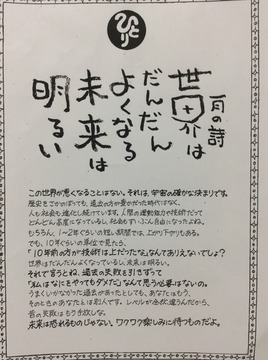 ひとり
一月の詩
世界は
だんだん
よくなる
未来は
明るい
この世界が悪くなることはない。それは、宇宙の確かな決まりです。
歴史をさかのぼっても、過去の方が豊かだった時代はなく、
人も社会も進化し続けています。人間の運動能力や技術だって
どんどん高度になっているし、社会もずいぶん自由になったよね。
もちろん、1〜2年ぐらいの短い期間では、上がり下がりもある。
でも、10年ぐらいの単位で見たら、
「10年前の方が技術は上だったな」なんてありえないでしょ?
世界はだんだんよくなっているし、未来は明るい。
それで言うとね、過去の失敗を引きずって
「私はなにをやってもダメだ」なんて思う必要はないの。
うまくいかなかった過去があったとしても、あなたはもう、
そのときのあなたとは別人です。レベルが全然違うんだから、
昔の失敗はもう手放しな。
未来は恐れるものじゃない。ワクワク楽しみに待つものだよ。